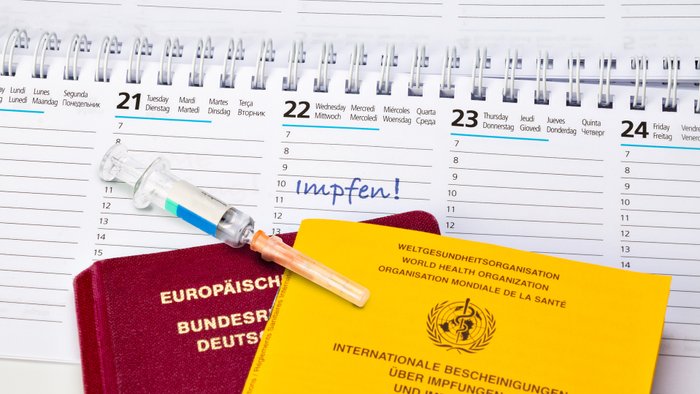 Lunes Segunda
Lundi Maandag Понедельник
21 Tuesday Mardi Martes Terça
Dienstag Martedì Dinsdag Вторник
22 Wednesday Mercredi Miércoles Quarta
Mittwoch Mercoledì Woensdag Среда
23 Thursday Jeudi Jueves Quinta
Donnerstag Giovedì Donderdag Четверг
24 Friday Vendredi
Freitag Venerdì
7
7
7
7
8
8
8
8
9
9
9
10
10
10
Impfen!
11
11
11
11
12
12
12
12
13
13
13
14
14
15
15
EUROPÄISCH
BUNDESR
DEUTSC
WELTGESUNDHEITSORGANISATION
WORLD HEALTH ORGANIZATION
ORGANISATION MONDIALE DE LA SANTÉ
INTERNATIONALE BESCHEINIGUNGEN
ÜBER IMPFUNGEN
UND IM